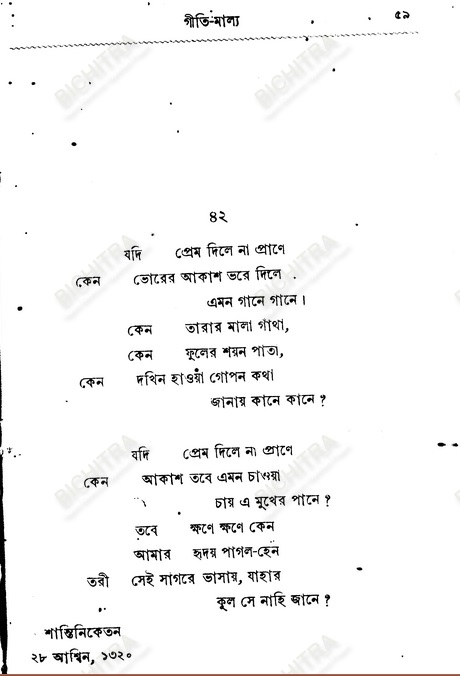 গীতি-মাল্য ৫৯
৪২
যদি প্রেম দিলে না প্রাণে
কেন ভোরের আকাশ ভরে দিলে
এমন গানে গানে।
কেন তারার মালা গাথা,
কেন ফুলের শয়ন পাতা,
কেন দখিন হাওয়া গোপন কথা
জানায় কানে কানে?
যদি প্রেম দিলে না প্রাণে
কেন আকাশ তবে এমন চাওয়া
চায় এ মুখের পানে?
তবে ক্ষণে ক্ষণে কেন
আমার হৃদয় পাগল-হেন
তরী সেই সাগরে ভাসায়, যাহার
কূল সে নাহি জানে?
শান্তিনিকেতন
২৮ আশ্বিন, ১৩২০
BICHITRA
BICHITRA
BICHITRA
BICHITRA
BICHITRA
BICHITRA
BICHITRA
BICHITRA